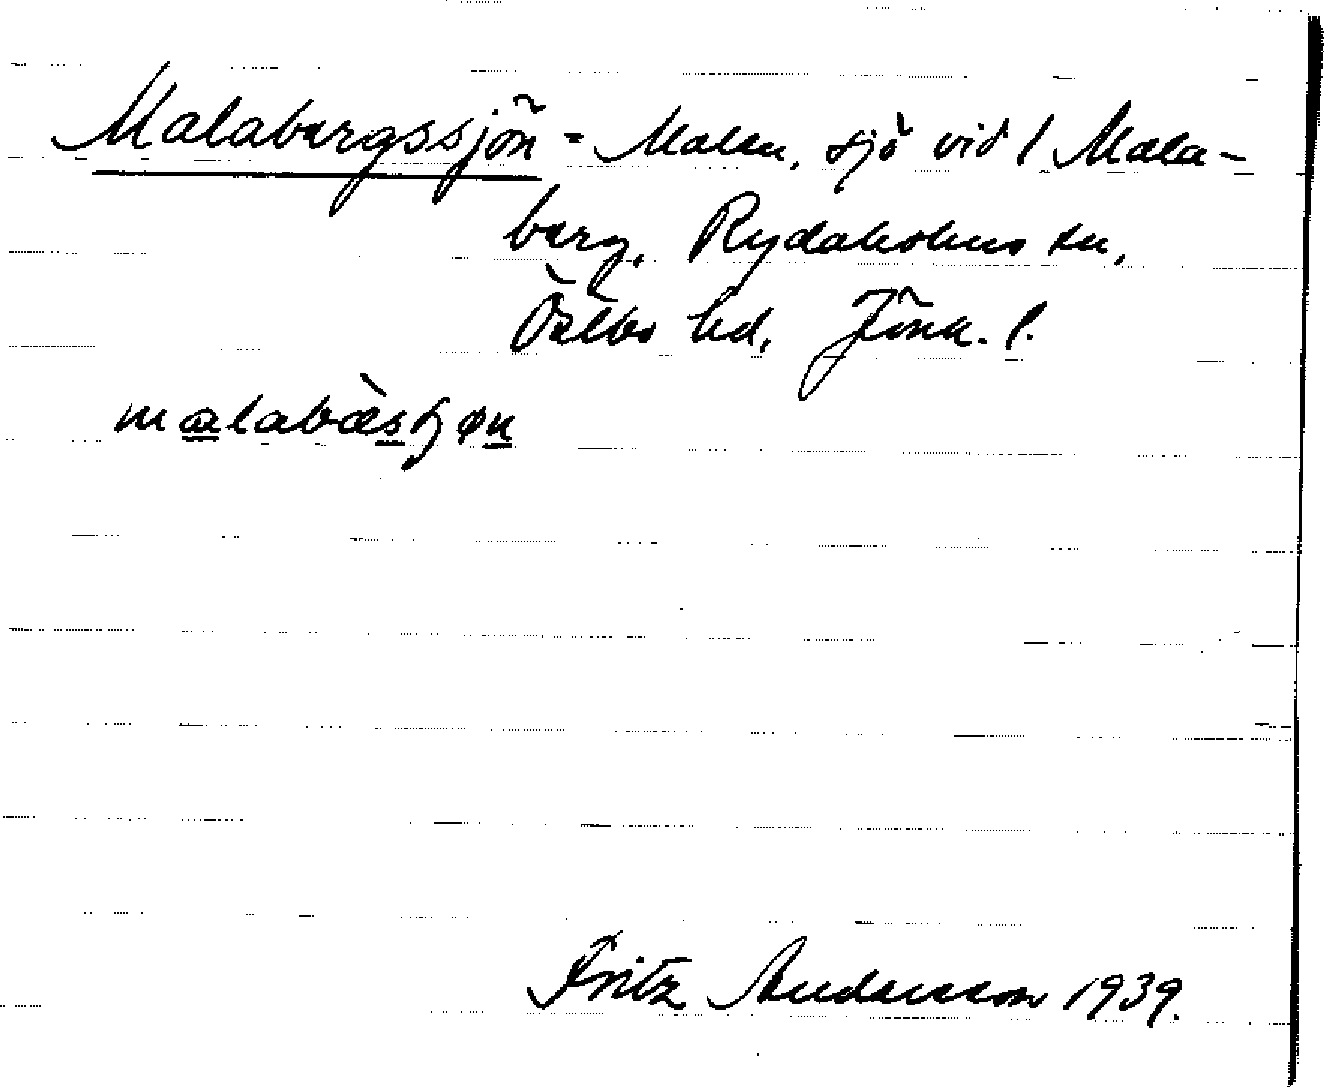 Malabergssjön = Malen, sjö vid 1 Mala-
berg, Rydaholms sn,
Östbo hd, Jönk. l.
malabæ̀sʃøn
Fritz Andersson 1939.